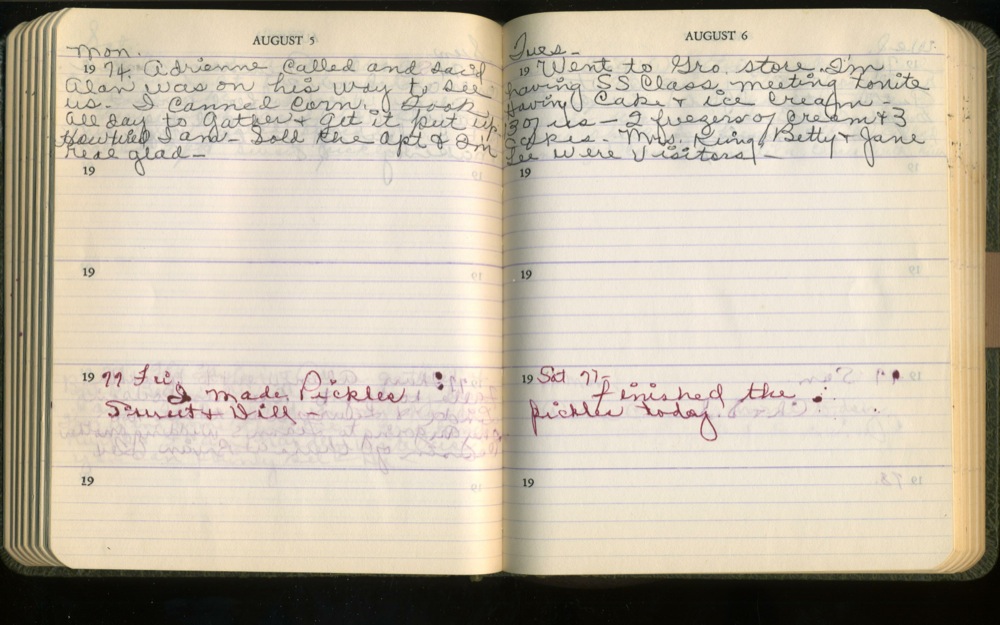 AUGUST 5
Mon.
19 74. Adrienne called and said
Alan was on his way to see
us. I canned Corn. Took
all day to gather & get it put up.
How tired I am - Sold the Apt & Im
real glad -
19
19
19 77 Fri.
I made Pickles
Sweet & Dill -
19
AUGUST 6
Tues -
19 Went to Gro. store. I'm
having SS Class meeting tonite
Having Cake & ice cream -
30 of us - 2 freezers of cream & 3
cakes. Mrs. King, Betty & Jane
Lee were visitors -
19
19
19 Sat. 77 -
Finished the
pickles today.
19